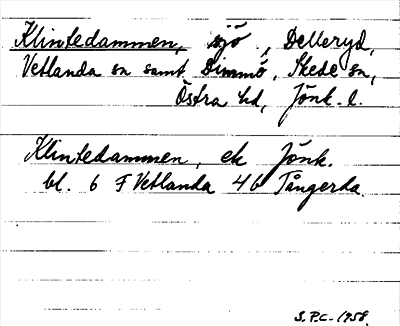 Klintedammen, sjö, Delleryd,
Vetlanda sn samt Dimmö, Skede sn,
Östra hd, Jönk. l.
Klintedammen, ek Jönk.
bl. 6 F Vetlanda 4 b Tångerda.
S.P.C. 1958.